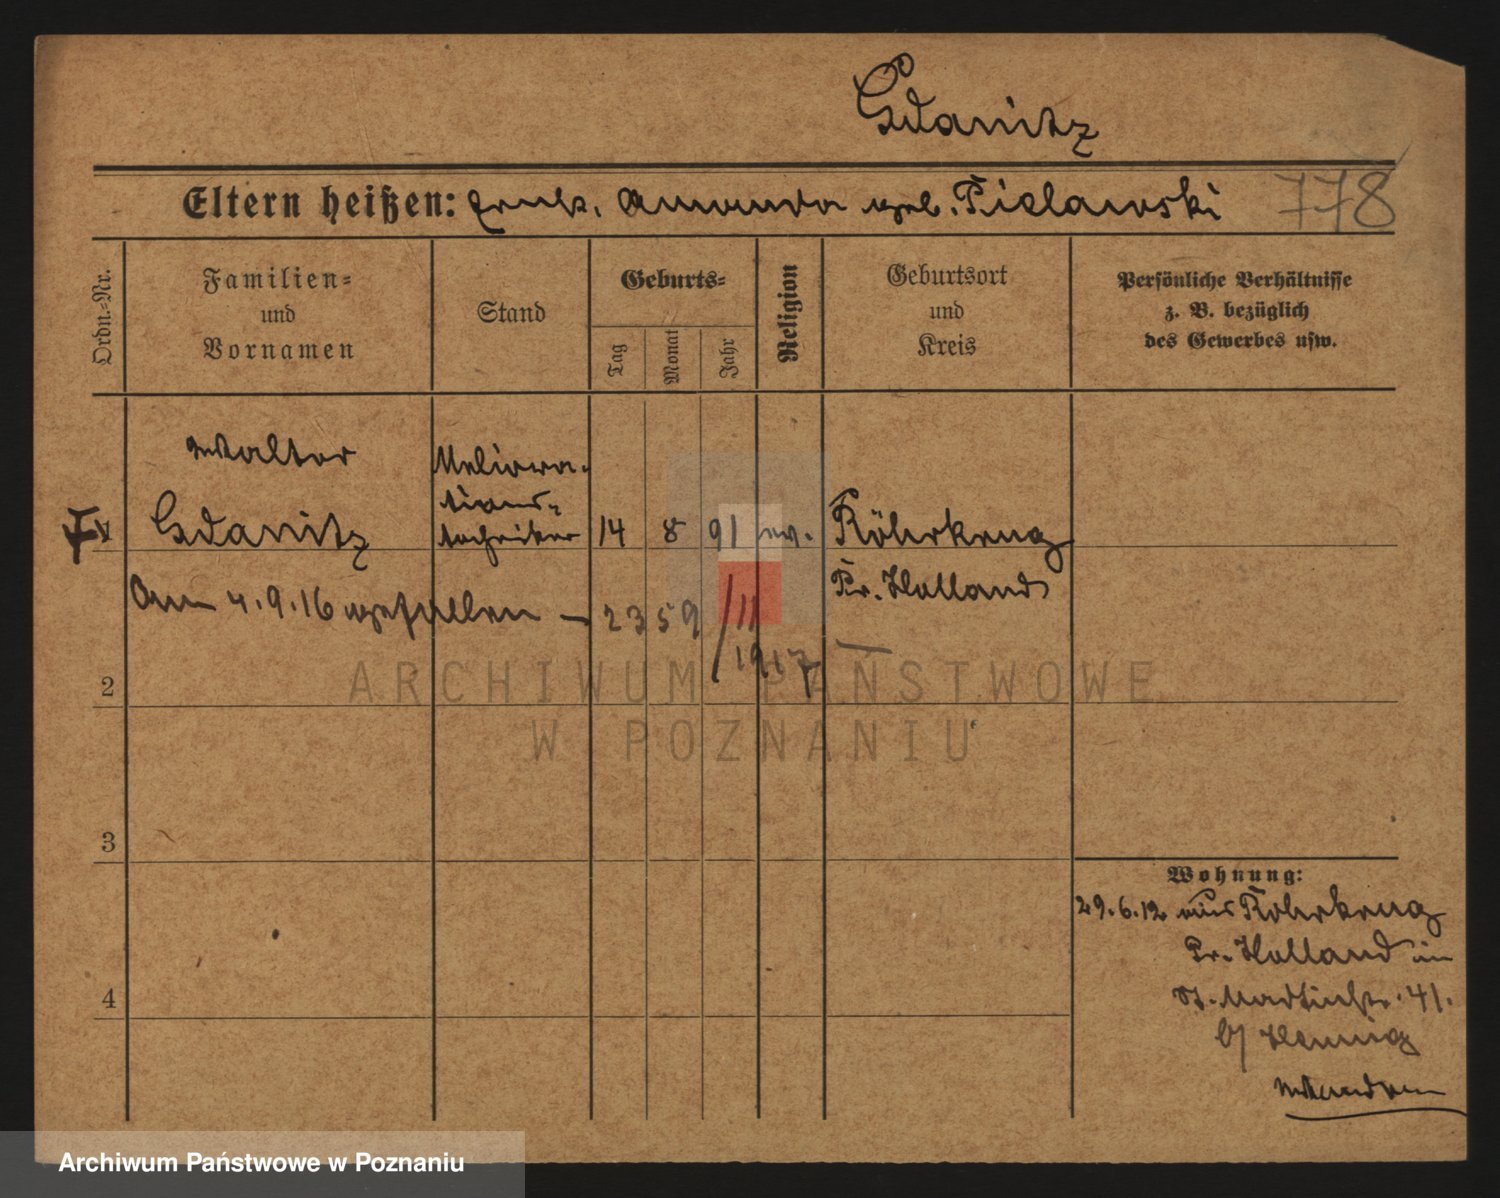 Gdanitz
Eltern heißen: Ernst, Amanda geb. Pielawski 778
Ordn.-Nr.
Familien-
und
Vornamen
Stand
Geburts-
Tag
Monat
Jahr
Religion
Geburtsort
und
Kreis
Persönliche Verhältnisse
z. B. bezüglich
des Gewerbes usw.
Walter
Gdanitz
Meliora-
tions-
techniker
14 8 91 ev. Röhrkrug
Pr. Holland
Am 4.9.16 gefallen – 2359/11
1917
2
3
4
Wohnung:
29.6.12 aus Röhrkrug
Pr. Holland in
St. Martinstr. 41.
b/ Hennig
ARCHIWUM PAŃSTWOWE
W POZNANIU
Archiwum Państwowe w Poznaniu